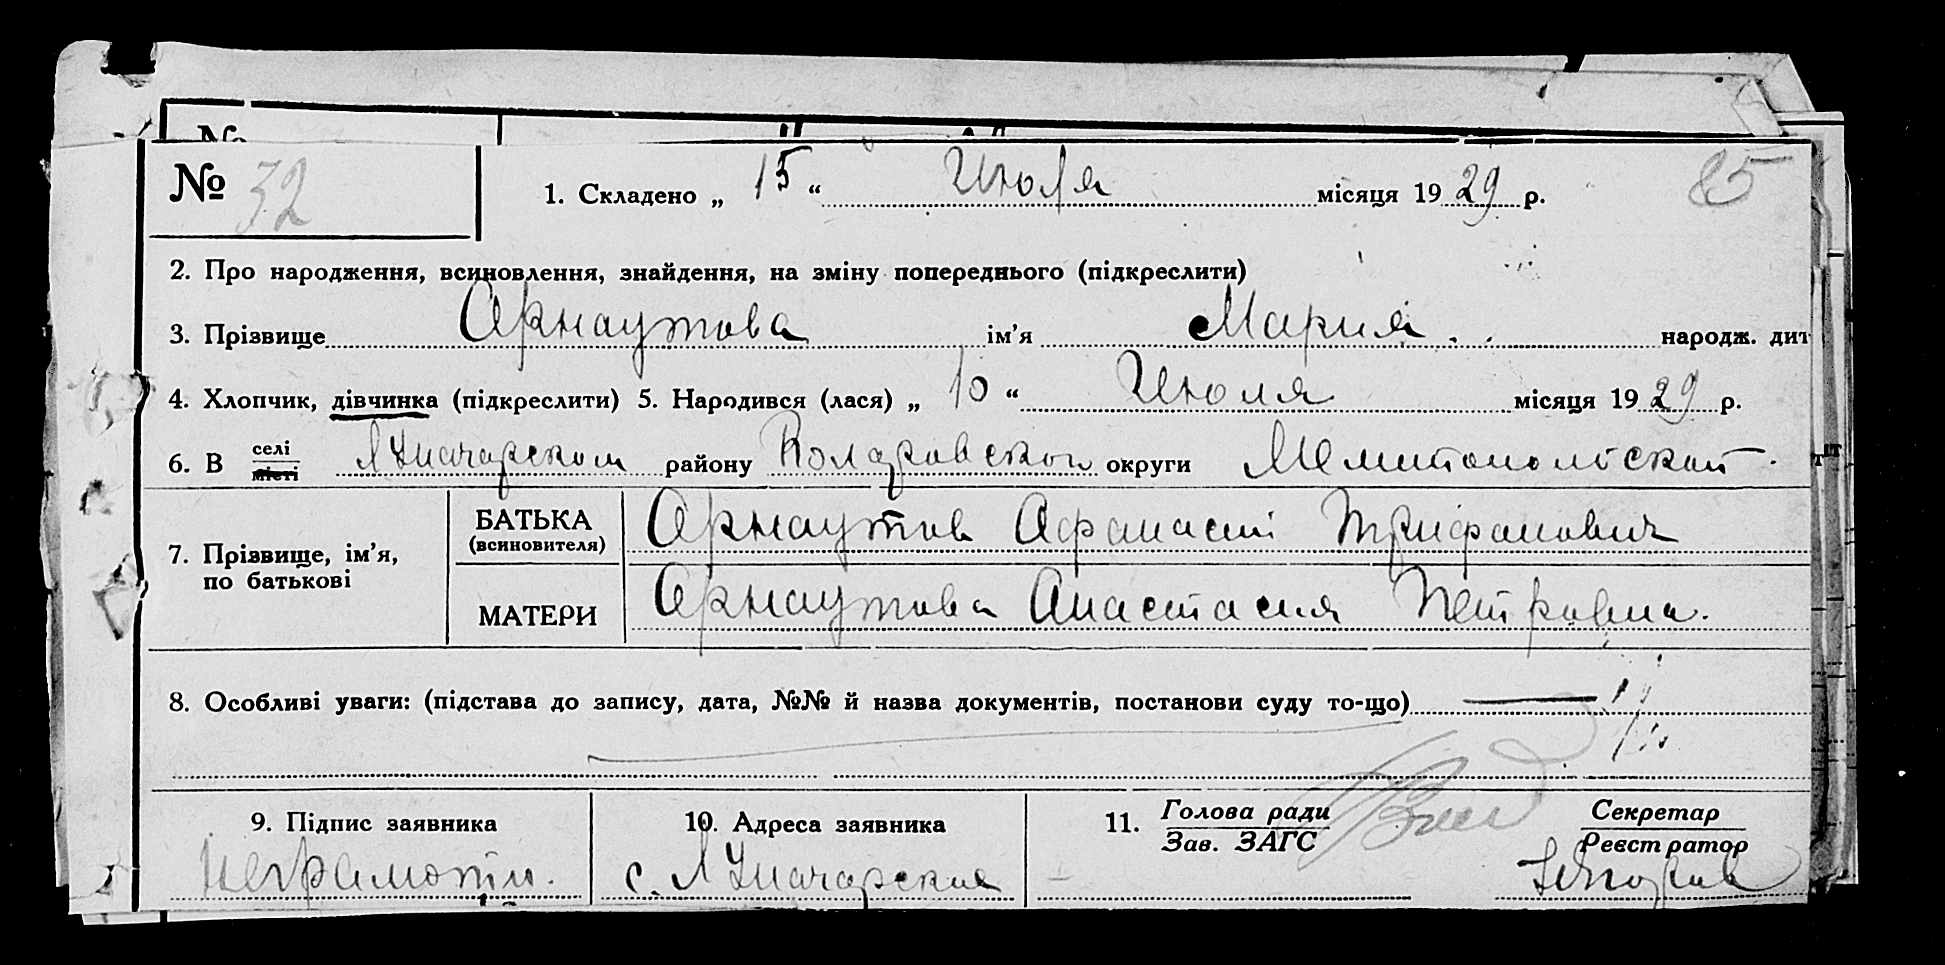 №
№ 32 1. Складено „ 15 “ Июля місяця 1929 р. 85
2. Про народження, всиновлення, знайдення, на зміну попереднього (підкреслити)
3. Прізвище Арнаутова ім’я Мария народж. дит
4. Хлопчик, дівчинка (підкреслити) 5. Народився (лася) „ 10 “ Июля місяця 1929 р.
6. В селі місті Луначарском району Коларовского округи Мелитопольской
7. Прізвище, ім’я, по батькові
БАТЬКА (всиновителя) Арнаутов Афанасий Трифанович
МАТЕРИ Арнаутова Анастасия Петровна.
8. Особливі уваги: (підстава до запису, дата, №№ й назва документів, постанови суду то-що)
9. Підпис заявника 10. Адреса заявника 11. Голова ради Секретар
Зав. ЗАГС Реєстратор
неграмотн. с. Луначарское